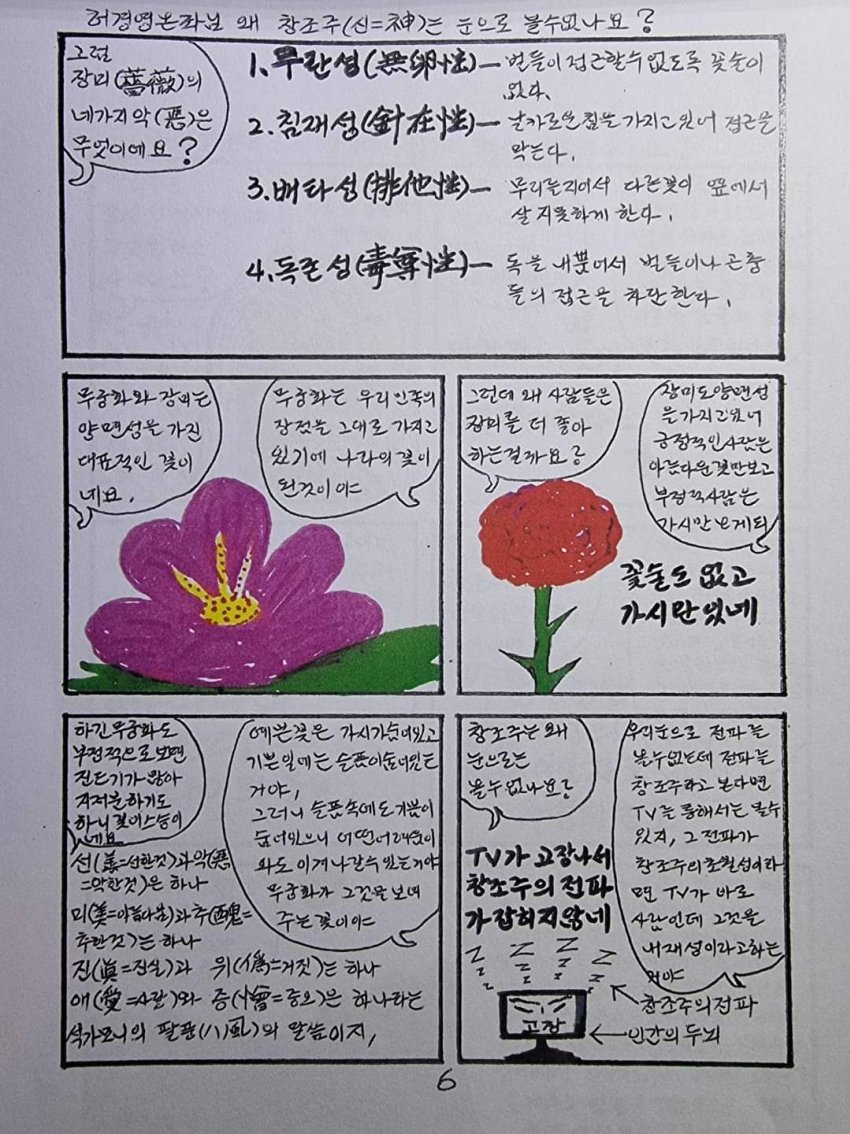 허경영은하님 왜 창조주(신=神)는 눈으로 볼수없나요?
그럼
장미(薔薇)의
네가지 악(惡)은
무엇이에요?
1. 무란성(無卵性)— 벌들이 접근할수 없도록 꽃술이
없다.
2. 침재성(針在性)— 날카로운 침을 가지고 있어 접근을
막는다.
3. 배타성(排他性)— 무리를지어서 다른꽃이 옆에서
살지못하게 한다.
4. 독존성(毒尊性)— 독을 내뿜어서 벌들이나 곤충
들의 접근을 차단한다.
무궁화와 장미는
양면성을 가진
대표적인 꽃이
네요.
무궁화는 우리민족의
장점을 그대로 가지고
있기에 나라의 꽃이
된것이야
그런데 왜 사람들은
장미를 더 좋아
하는걸까요?
장미도양면성
을가지고있어
긍정적인사람은
아름다운꽃만보고
부정적사람은
가시만 보게되
꽃술도 없고
가시만 있네
하긴 무궁화도
부정적으로보면
진드기가 많아
지저분하기도
하니 꽃이스승이
네요
예쁜꽃은 가시가숨어있고
기쁜일에는 슬픔이숨어있는
거야,
그러니 슬픔속에도 기쁨이
숨어있으니 어떤어려움이
와도 이겨나갈수 있는거야
무궁화가 그것을 보여
주는꽃이야
선(善=선한것)과악(惡
=악한것)은 하나
미(美=아름다움)과추(醜=
추한것)는 하나
진(眞=진실)과 위(僞=거짓)는 하나
애(愛=사랑)와 증(憎=증오)은 하나라는
석가모니의 팔풍(八風)의 말씀이지,
창조주는 왜
눈으로는
볼수없나요?
우리눈으로 전파를
볼수없는데 전파를
창조주라고 본다면
TV를 통해서는 볼수
있지, 그 전파가
창조주의초월성이라
면 TV가 바로
사람인데 그것을
내재성이라고하는
거야
TV가 고장나서
창조주의 전파
가잡히지않네
z z z z
z z z z
z z z z
고장
창조주의전파
인간의두뇌
6